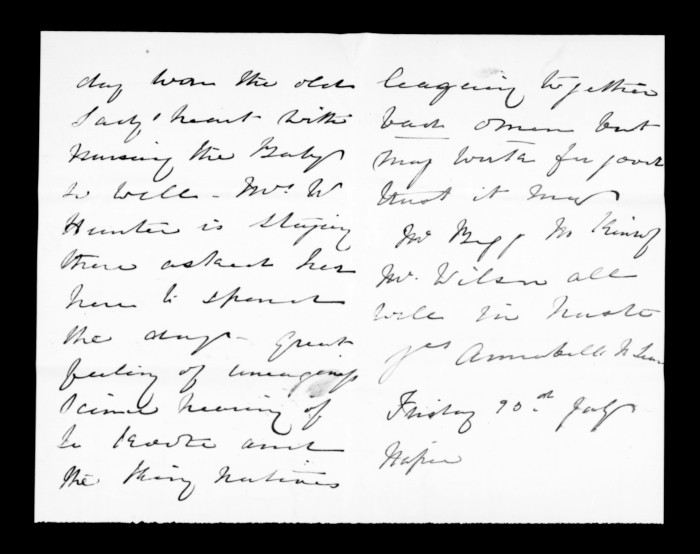 day won the old
Lady's heart with
nursing the Baby
so well - Mrs W
Hunter is staying
there asked her
here to spend
the day - Great
feeling of uneasiness
since hearing of
Te Kooti and
the King natives
leaguing together
bad omen but
may work for good
trust it may
Mr Begg
Mr Wilson all
well in haste
yrs Annabella McLean
Friday 90th July
Napier